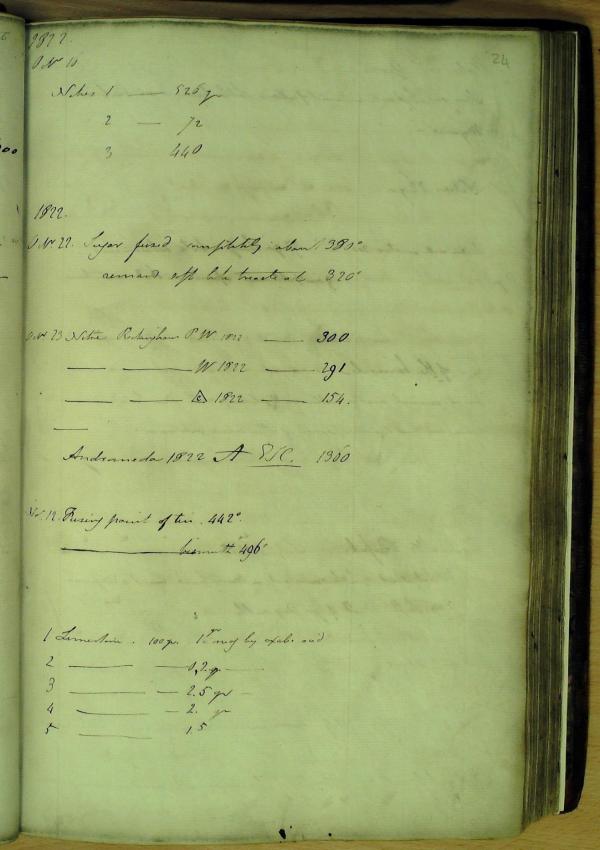 24
1822.
Nitre 1 — 526 gr
2 — 72
3 440
1822.
22. Sugar fused completely about 380°
remains like treacle at 320°
23 Nitre Rockingham P W 1822 — 300
— — W 1822 — 291
— — 1822 — 154.
—
Andromeda 1822 A EIC. 1300
12. Fusing point of tin. 442°.
— bismuth 496°
1 Limestone. 100 gr. 1 gr by oxalic acid
2 — — 0,2 gr —
3 — — 2.5 gr —
4 — — 2. gr
5 — 1.5